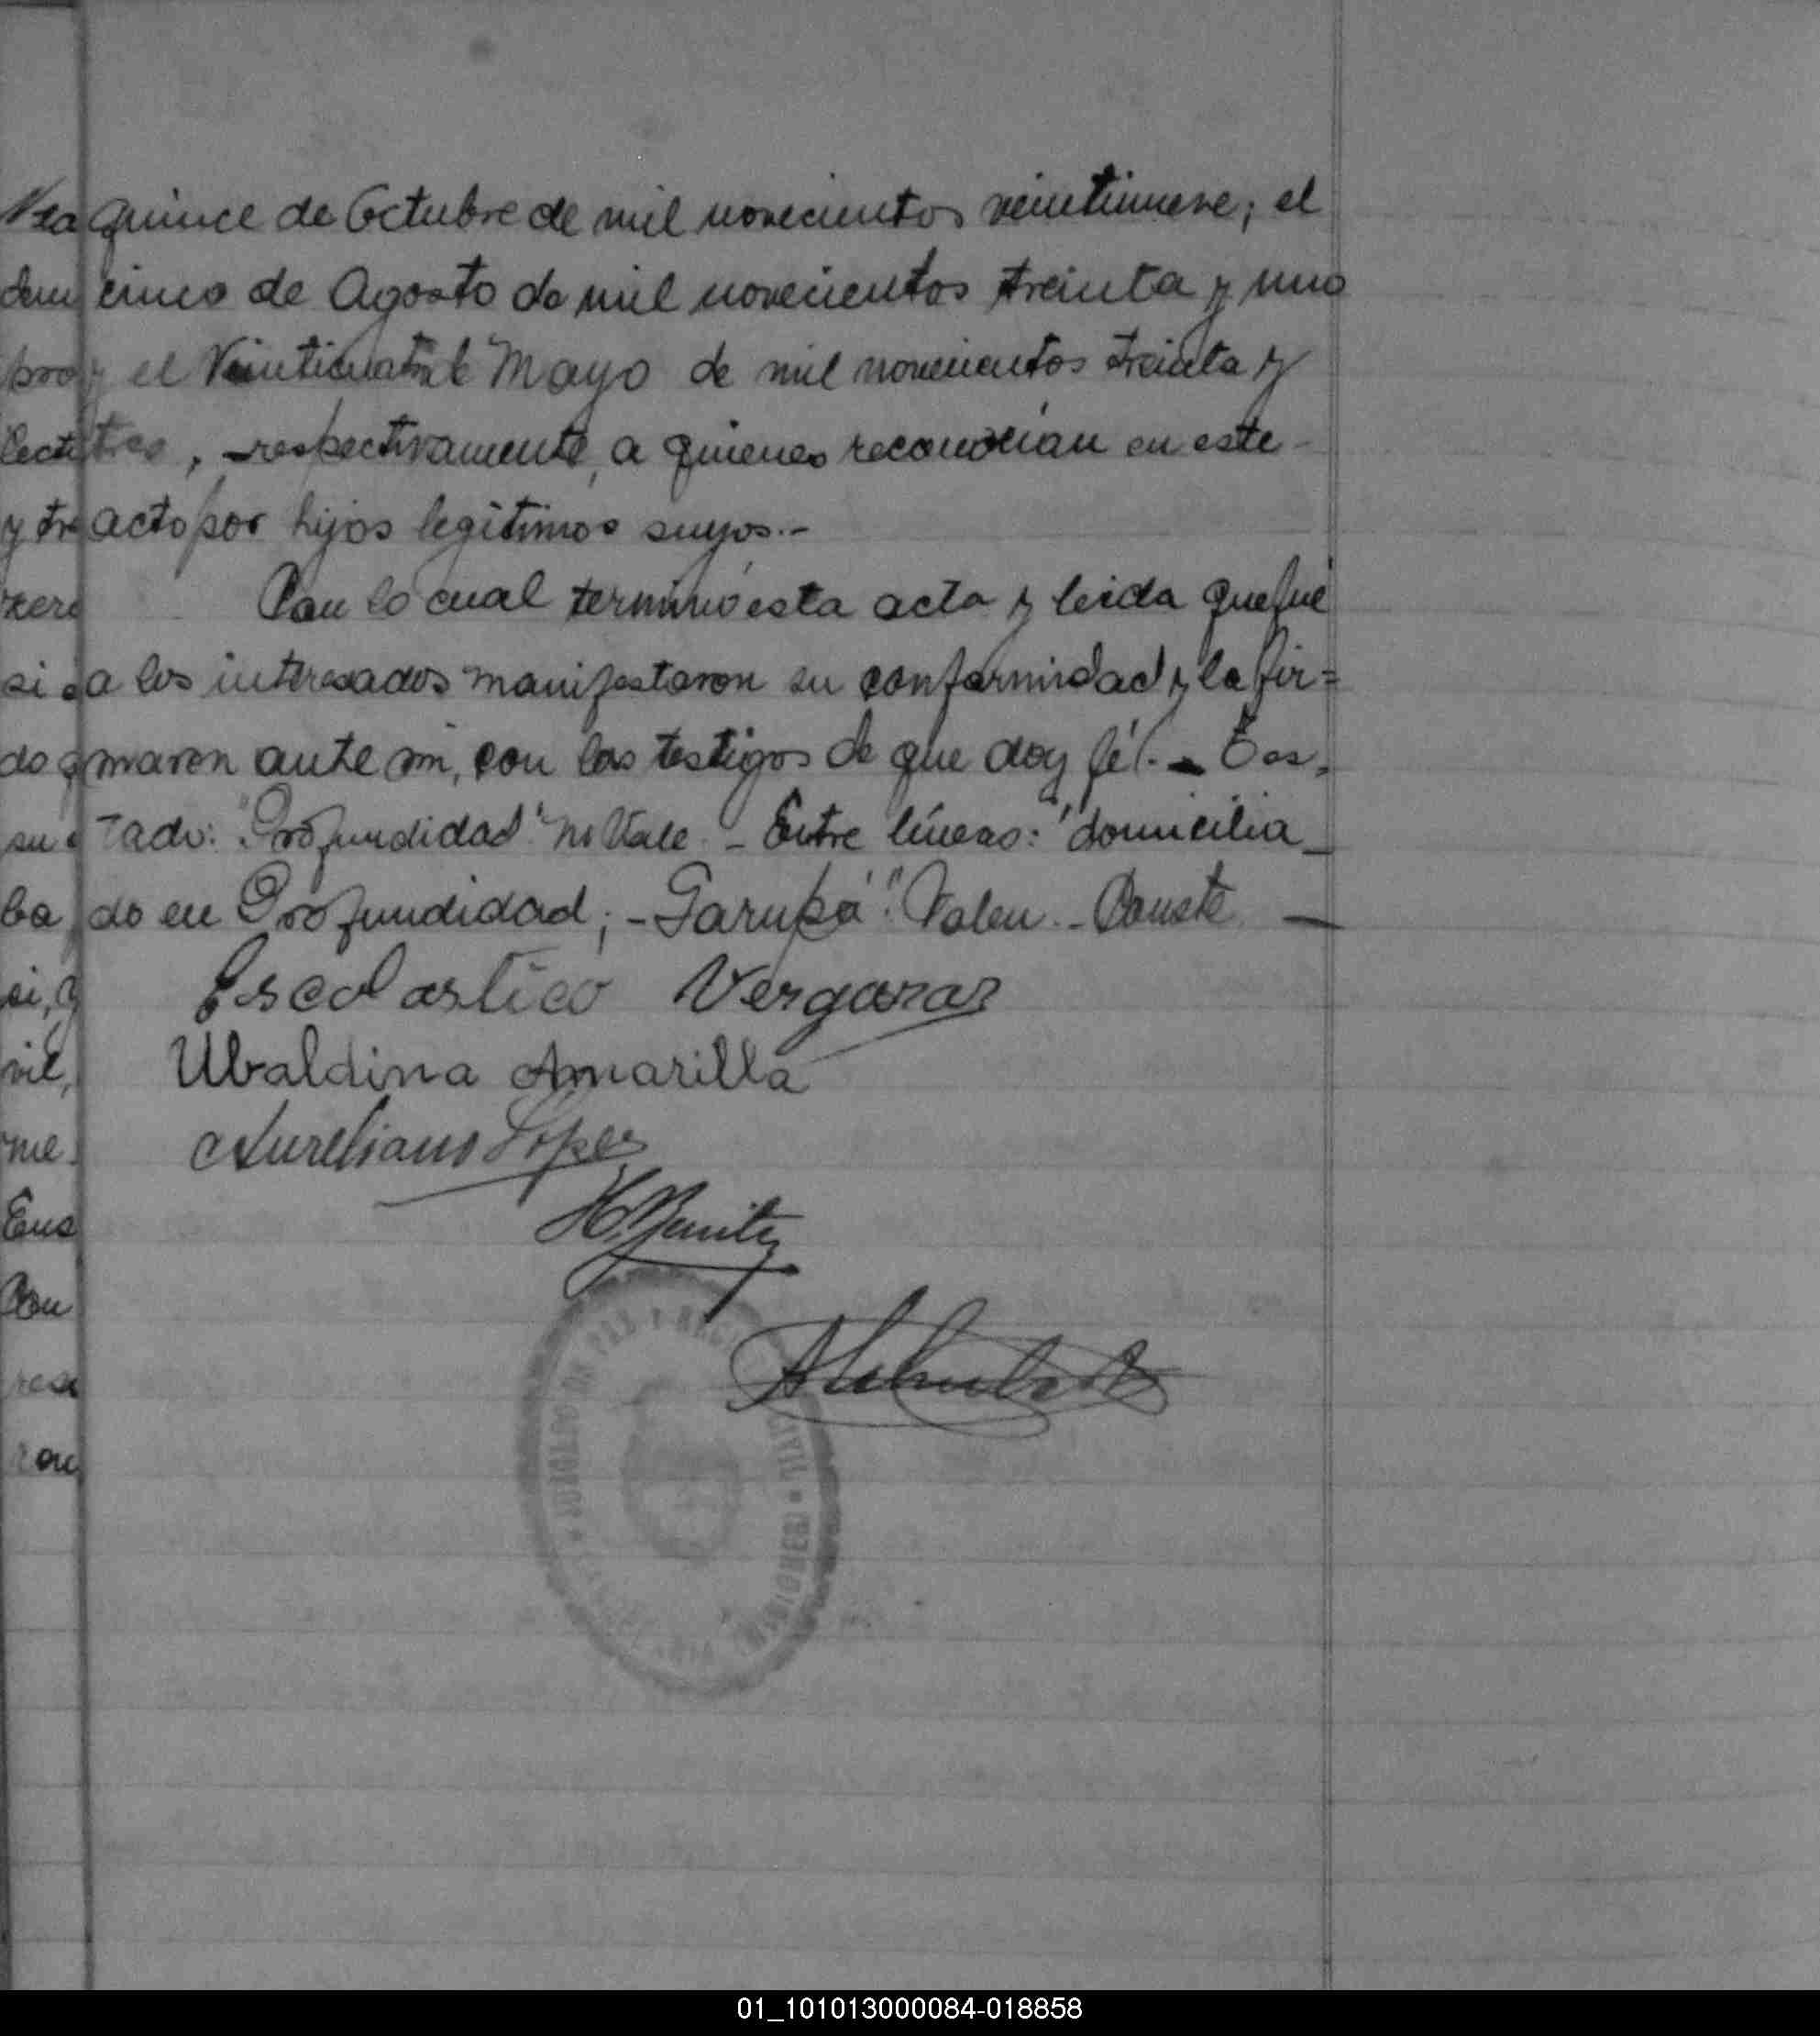 quince de Octubre de mil novecientos veintinueve; el
cinco de Agosto de mil novecientos treinta y uno
y el Veinticuatro de Mayo de mil novecientos treinta y
tres, respectivamente, a quienes reconocían en este
acto por hijos legítimos suyos.-
Con lo cual terminó esta acta y leida que fué
a los interesados manifestaron su conformidad y la fir=
maron ante mi, con los testigos de que doy fé. - Tes-
tado: "Profundidad" No Vale. - Entre líneas: "domicilia_
do en Profundidad; - Garupá". Valen. - Conste. —
Escolastico Vergara
Ubaldina Amarilla
Aureliano Lopez
H. Benitez
01_101013000084-018858